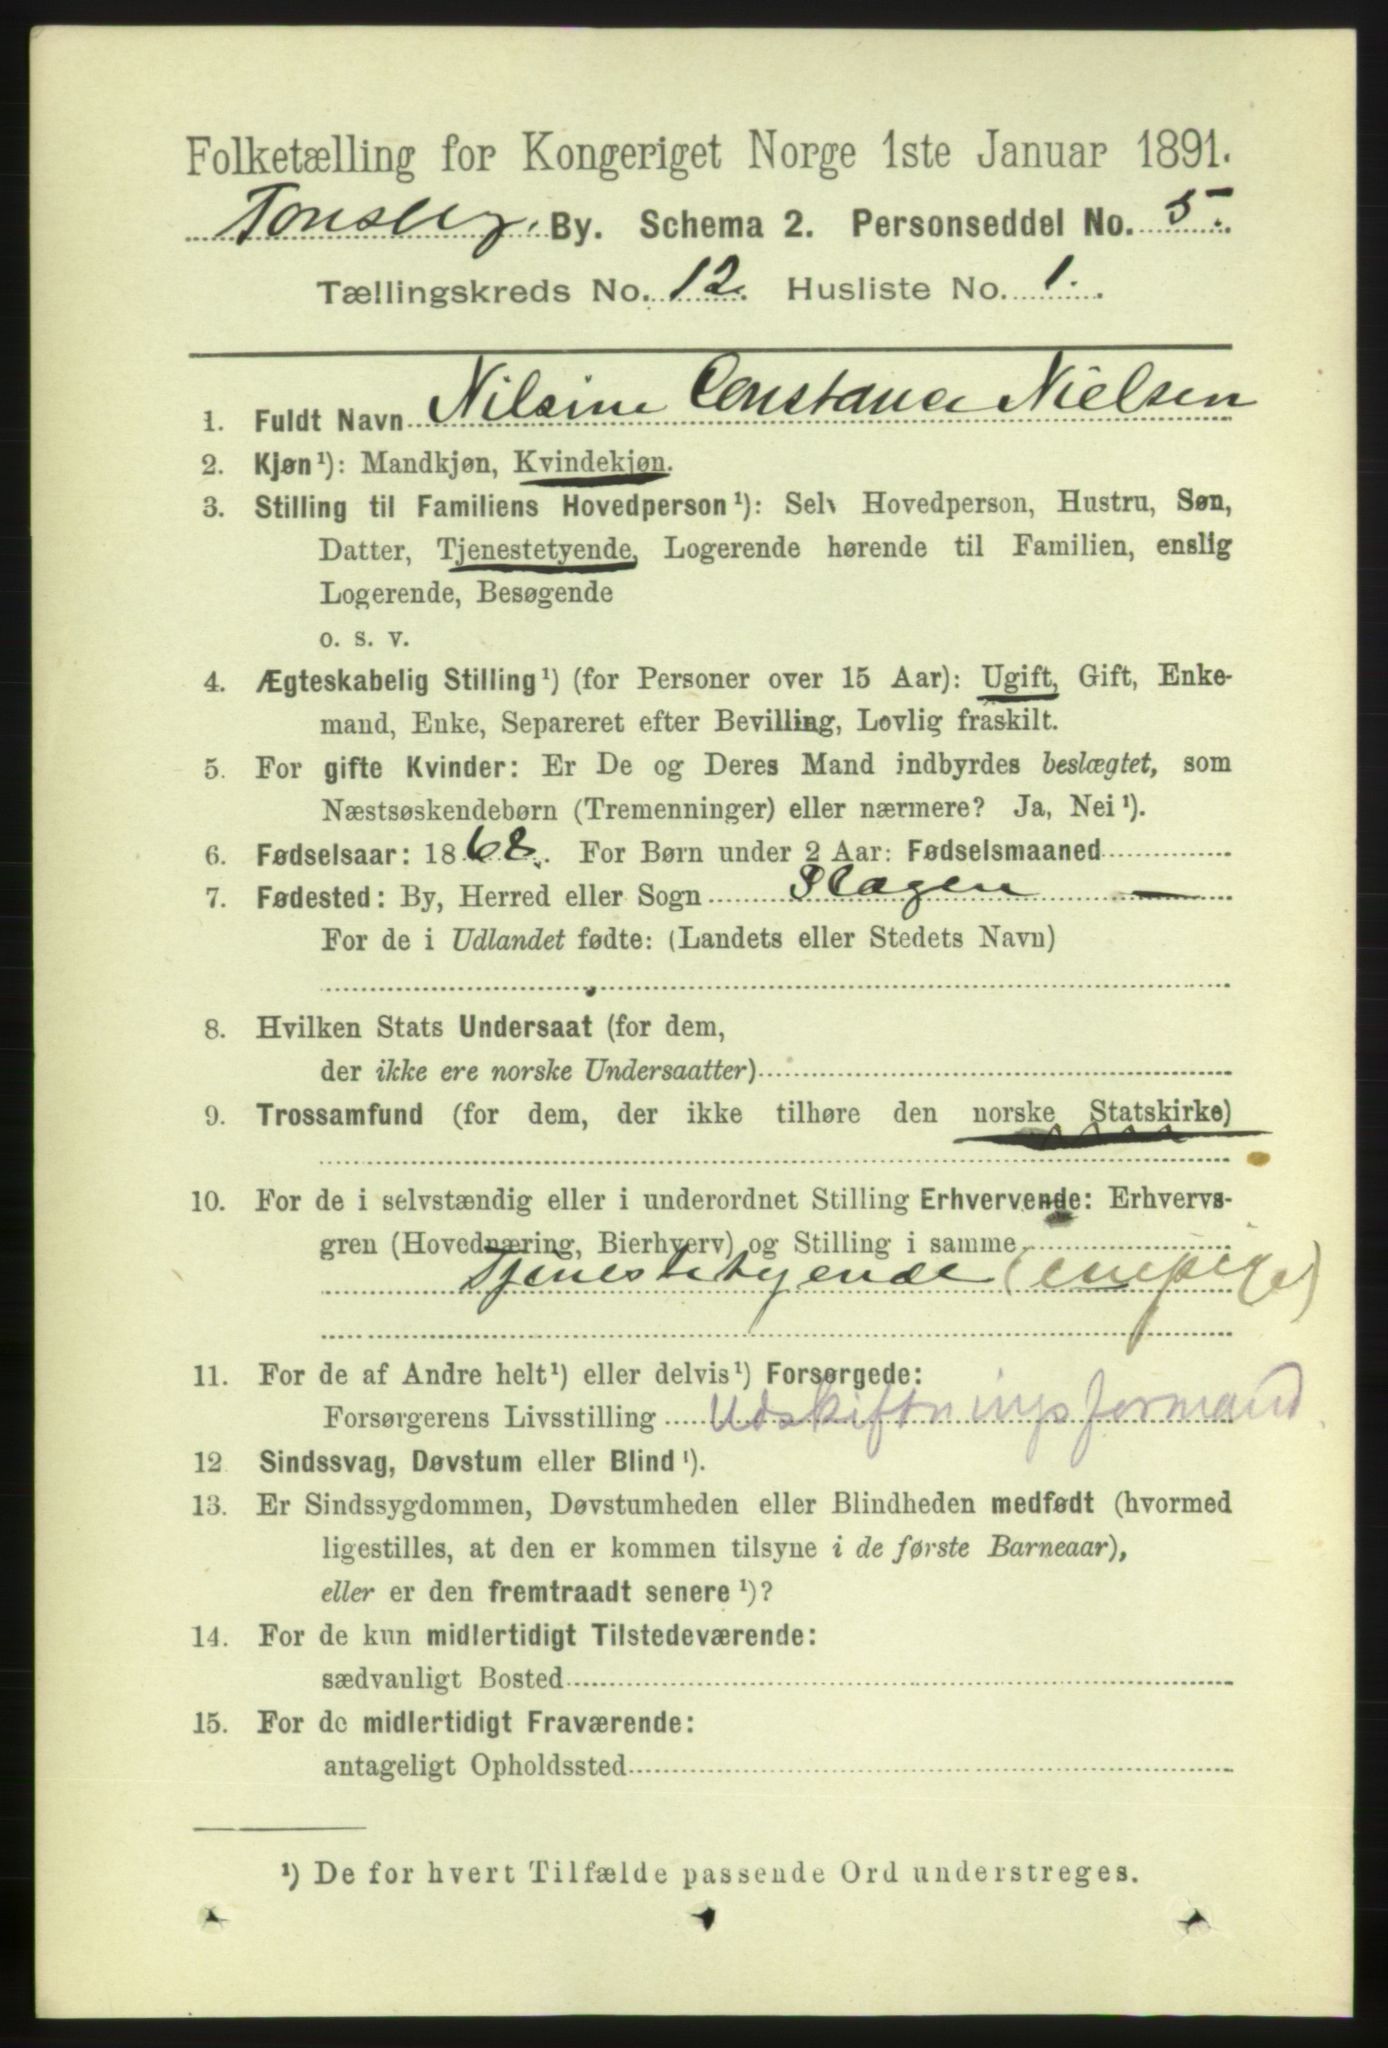 Folketælling for Kongeriget Norge 1ste Januar 1891.
Tønsberg By. Schema 2. Personseddel No. 5.
Tællingskreds No. 12. Husliste No. 1.
1. Fuldt Navn Nilsine Constance Nielsen
2. Kjøn¹): Mandkjøn, Kvindekjøn.
3. Stilling til Familiens Hovedperson¹): Selv Hovedperson, Hustru, Søn,
Datter, Tjenestetyende, Logerende hørende til Familien, enslig
Logerende, Besøgende
o. s. v.
4. Ægteskabelig Stilling¹) (for Personer over 15 Aar): Ugift, Gift, Enke-
mand, Enke, Separeret efter Bevilling, Lovlig fraskilt.
5. For gifte Kvinder: Er De og Deres Mand indbyrdes beslægtet, som
Næstsøskendebørn (Tremenninger) eller nærmere? Ja, Nei¹).
6. Fødselsaar: 1868. For Børn under 2 Aar: Fødselsmaaned
7. Fødested: By, Herred eller Sogn Slagen —
For de i Udlandet fødte: (Landets eller Stedets Navn)
8. Hvilken Stats Undersaat (for dem,
der ikke ere norske Undersaatter)
9. Trossamfund (for dem, der ikke tilhøre den norske Statskirke)
10. For de i selvstændig eller i underordnet Stilling Erhvervende: Erhvervs-
gren (Hovednæring, Bierhverv) og Stilling i samme
Tjenestetyende (enepige)
11. For de af Andre helt¹) eller delvis¹) Forsørgede:
Forsørgerens Livsstilling Udskiftningsformand
12 Sindssvag, Døvstum eller Blind¹).
13. Er Sindssygdommen, Døvstumheden eller Blindheden medfødt (hvormed
ligestilles, at den er kommen tilsyne i de første Barneaar),
eller er den fremtraadt senere¹)?
14. For de kun midlertidigt Tilstedeværende:
sædvanligt Bosted
15. For de midlertidigt Fraværende:
antageligt Opholdssted
¹) De for hvert Tilfælde passende Ord understreges.